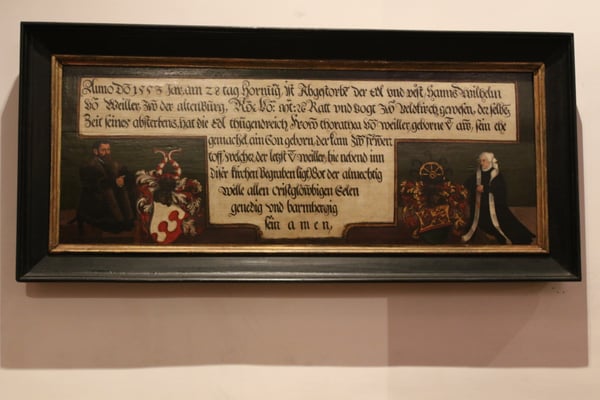 Anno Dō 1553 Jar, am 28 tag Hornūg ist Abgestorbē der Edl vnd vest, Hanns Wilhelm
vō Weiller, zw der altenburg, Rö: Kö: Mt: Ratt vnd vogt zw veldkirch gewesen, der selbē
Zeit seines absterbens, hat die Edl thugendreich Frow thorathea vō weiller, geborne v̄ aw, sein ehe
gemachel, ain Son geborn, der kam zw frwer
toff, welcher der letst v̄ weiller, hie nebend inn
diser kirchen Begraben ligt, Got der almechtig
welle allen cristglöwbigen Selen
genedig vnd barmhertzig
sein amen,